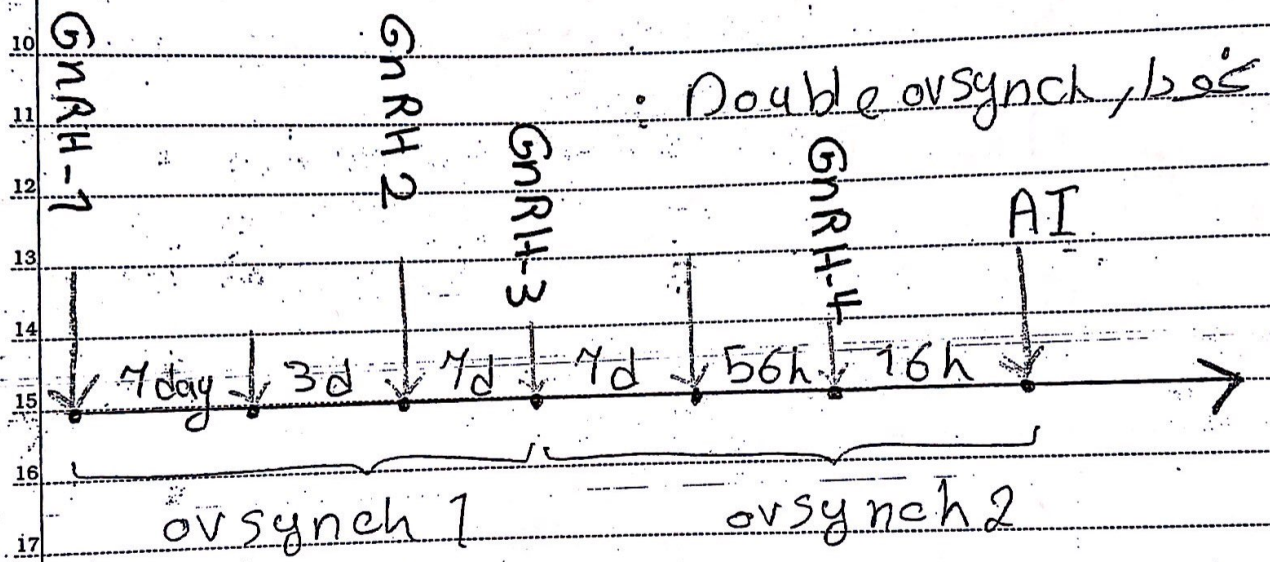 10
11
12
13
14
15
16
17
Double ovsynch :
GnRH-1
GnRH 2
GnRH-3
GnRH-4
AI
7 day 3d 7d 7d 56h 16h
ovsynch 1 ovsynch 2